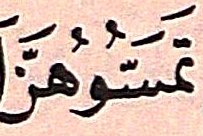 تَمَسُّوهُنَّ